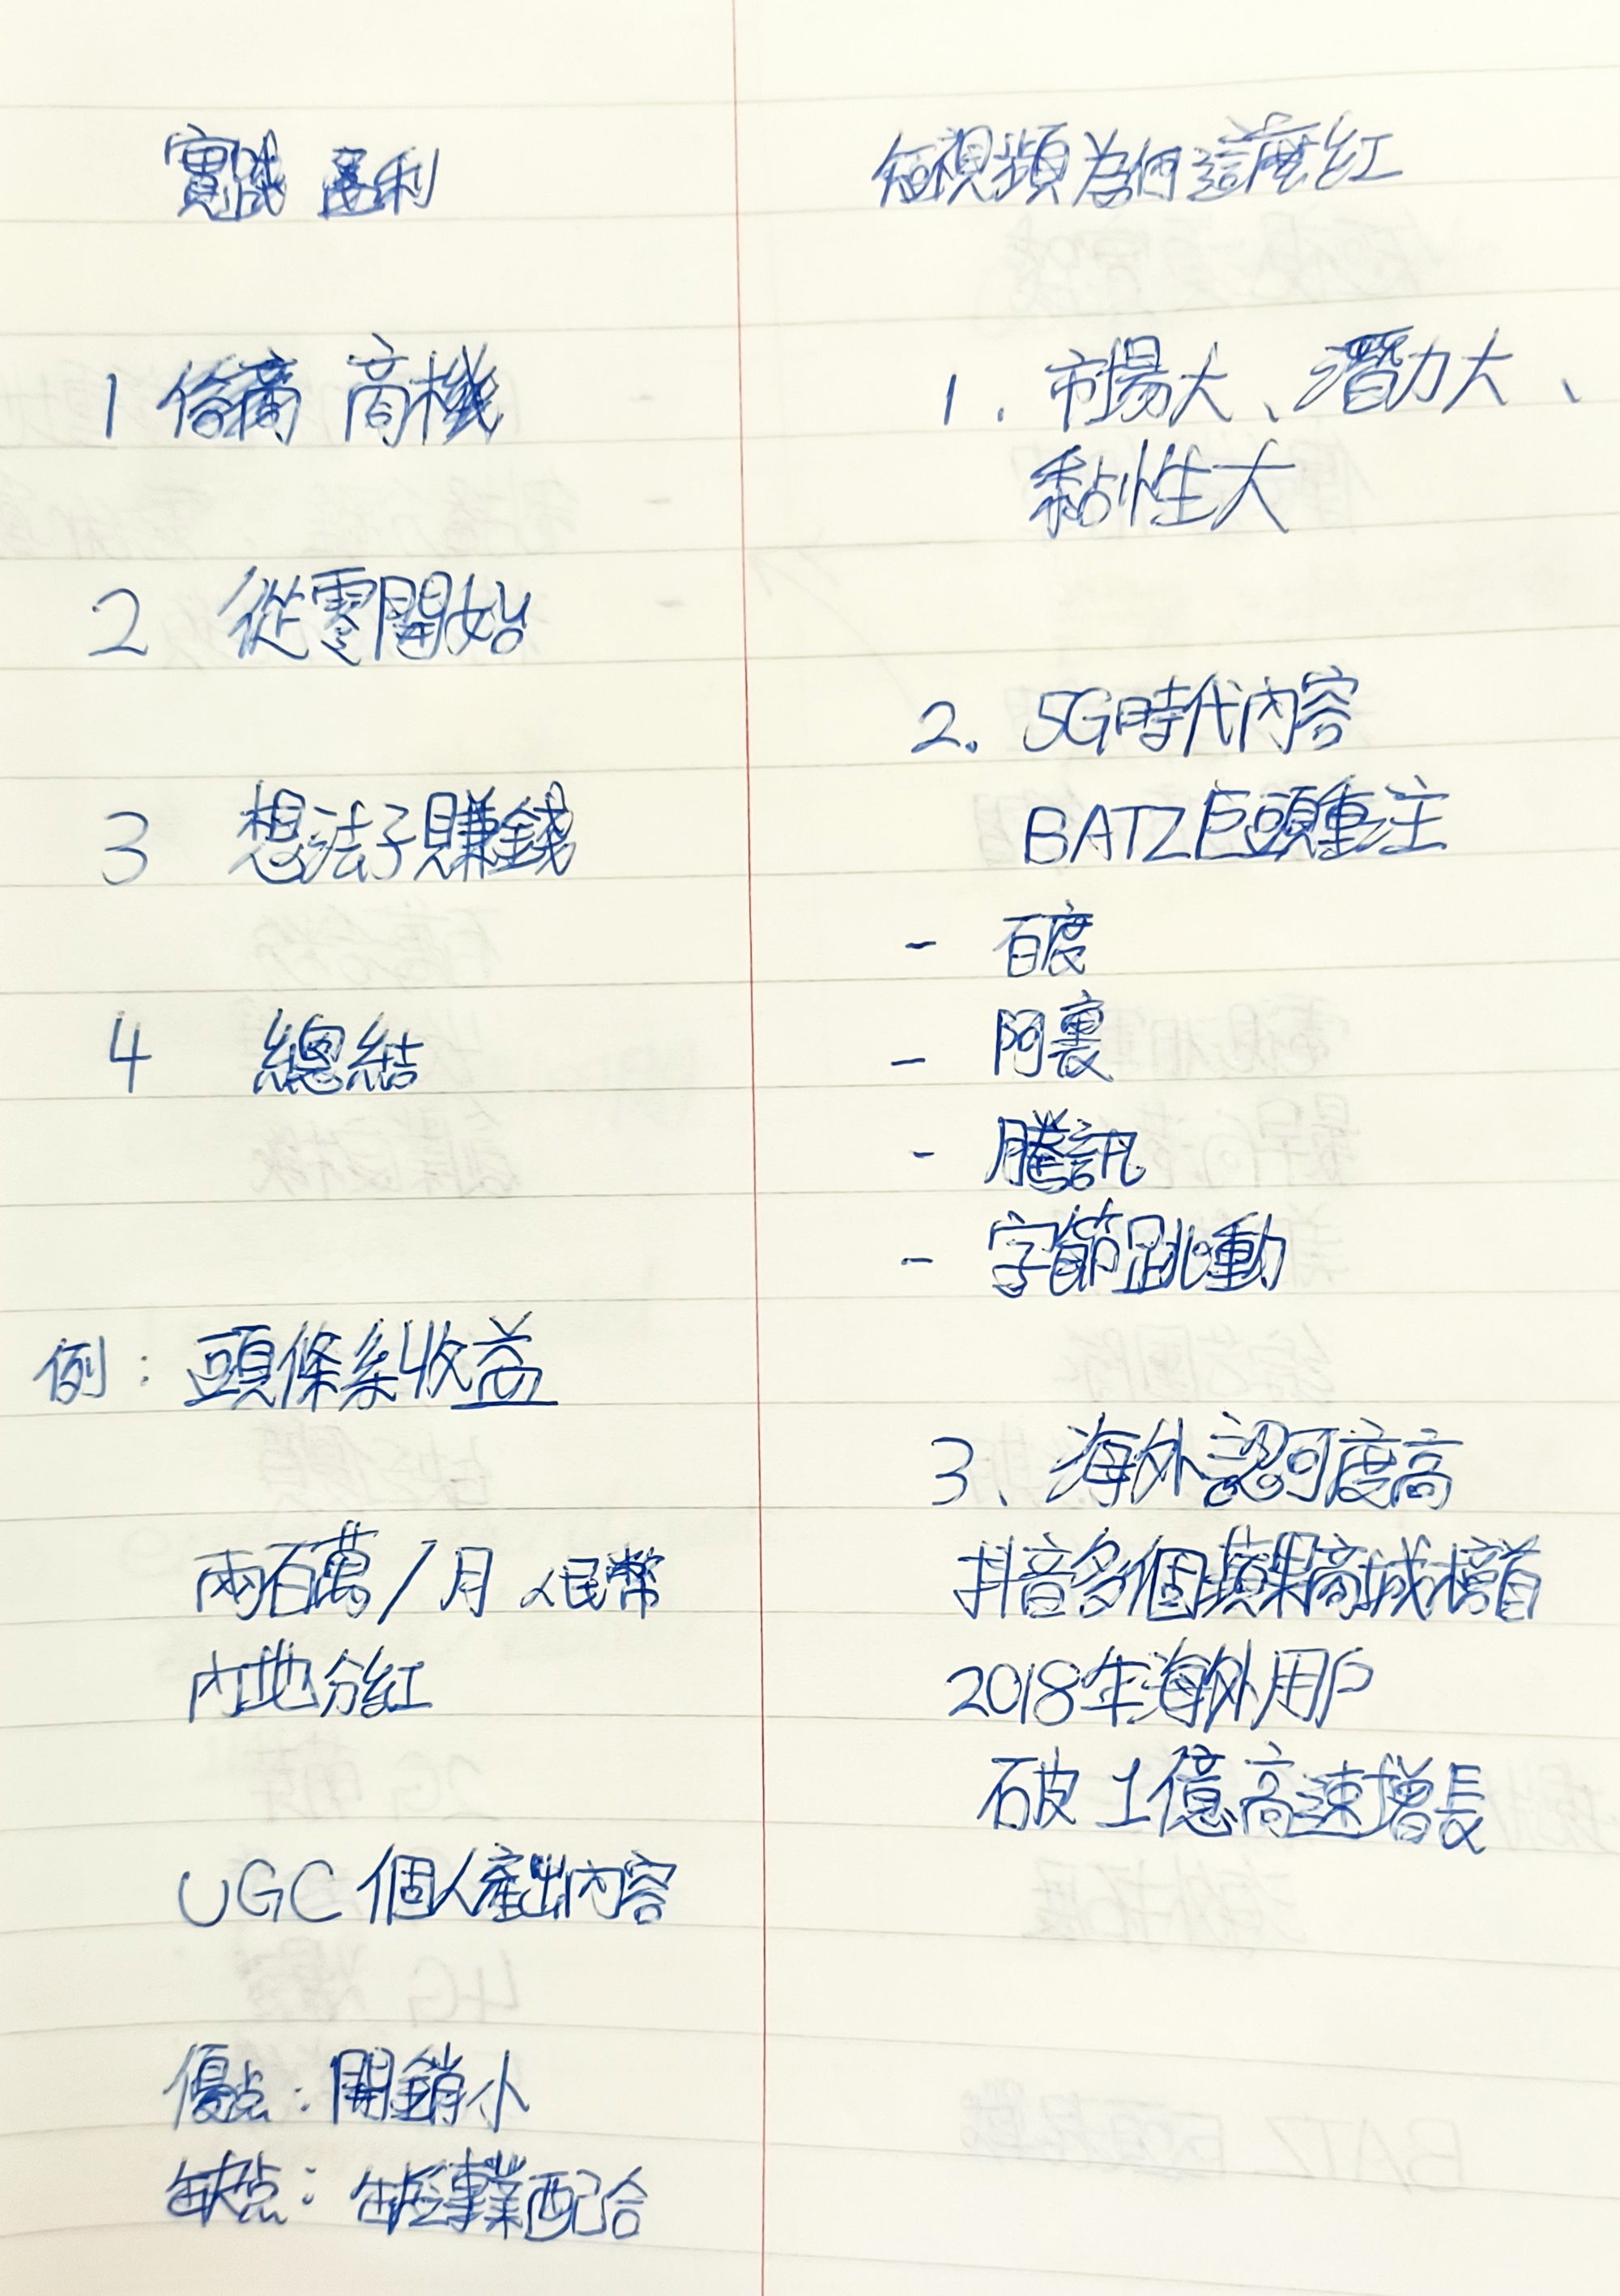 實戰 盈利
1 商機
2 從零開始
3 想法子賺錢
4 總結
例：頭條系收益
兩百萬/月 人民幣
內地分紅
UGC 個人產出內容
優点：開銷小
缺点：缺乏專業配合
短視頻為何這麼紅
1. 市場大、潛力大、
黏性大
2. 5G時代內容
BATZ巨頭重注
- 百度
- 阿裏
- 騰訊
- 字節跳動
3、海外認可度高
抖音多個蘋果商城榜首
2018年海外用户
破 1億高速增長